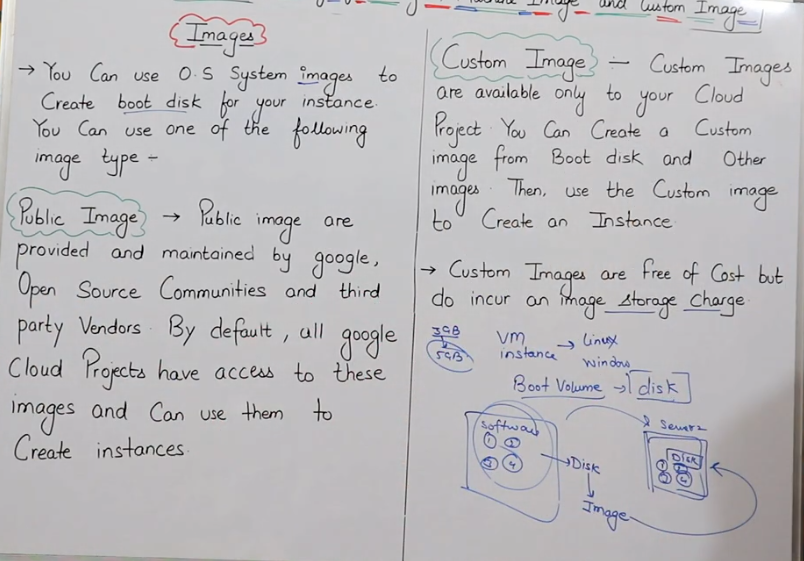 Image and Custom Image
Images
→ You Can use O.S System images to
Create boot disk for your instance.
You Can use one of the following
image type -
Public Image → Public image are
provided and maintained by google,
Open Source Communities and third
party Vendors. By default, all google
Cloud Projects have access to these
images and Can use them to
Create instances.
Custom Image - Custom Images
are available only to your Cloud
Project. You Can Create a Custom
image from Boot disk and Other
images. Then, use the Custom image
to Create an Instance.
→ Custom Images are free of Cost but
do incur an image storage charge.
3GB
5GB
VM instance → Linux
Window
Boot Volume → disk
Software
1 2
3 4
→ Disk
Image
Server2
Disk